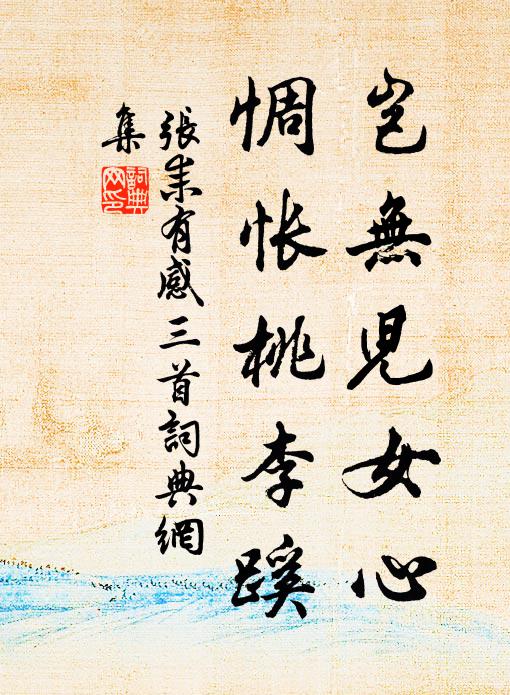 豈無兒女心
惆悵桃李蹊
張耒有感三首詞典網
集
詞典
网印